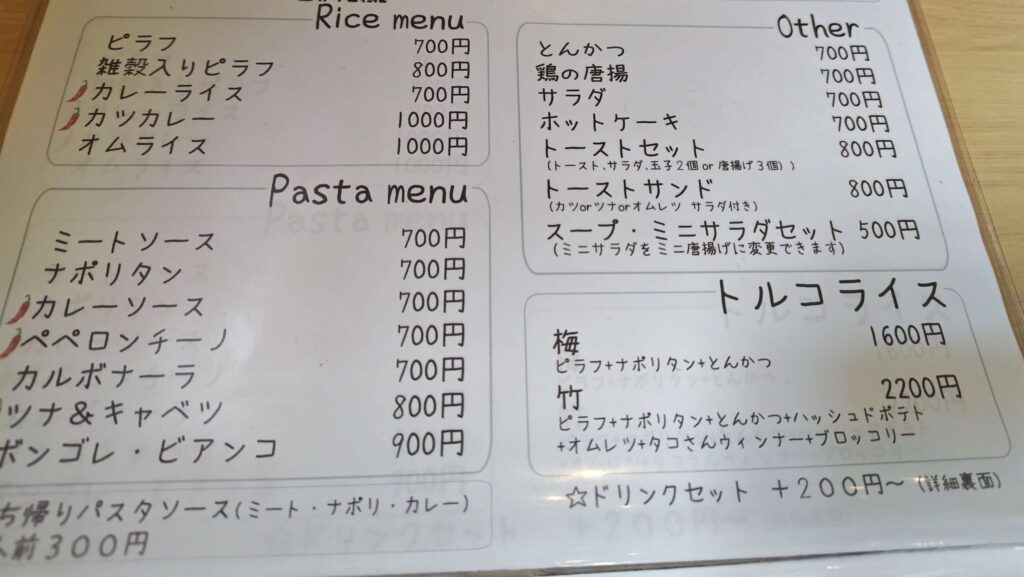 Rice menu
ピラフ 700円
雑穀入りピラフ 800円
カレーライス 700円
カツカレー 1000円
オムライス 1000円
Pasta menu
ミートソース 700円
ナポリタン 700円
カレーソース 700円
ペペロンチーノ 700円
カルボナーラ 700円
ツナ&キャベツ 800円
ボンゴレ・ビアンコ 900円
ち帰りパスタソース(ミート・ナポリ・カレー)
人前300円
Other
とんかつ 700円
鶏の唐揚 700円
サラダ 700円
ホットケーキ 700円
トーストセット 800円
(トースト、サラダ、玉子2個or唐揚げ3個))
トーストサンド 800円
(カツorツナorオムレツ サラダ付き)
スープ・ミニサラダセット 500円
(ミニサラダをミニ唐揚げに変更できます)
トルコライス
梅 1600円
ピラフ+ナポリタン+とんかつ
竹 2200円
ピラフ+ナポリタン+とんかつ+ハッシュドポテト
+オムレツ+タコさんウィンナー+ブロッコリー
☆ドリンクセット +200円~(詳細裏面)